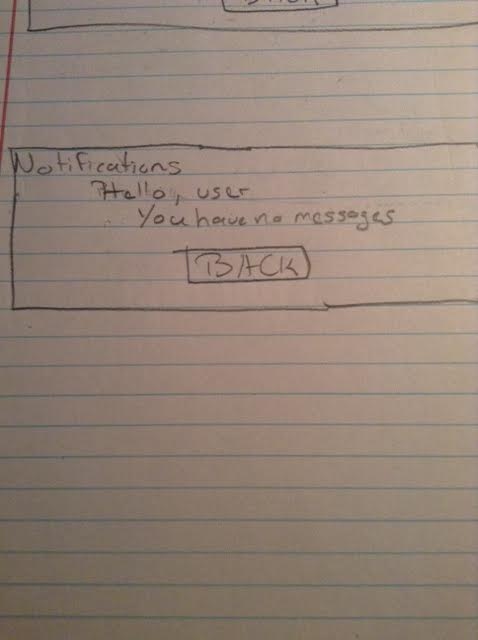 BACK
Notifications
Hello, user
You have no messages
BACK